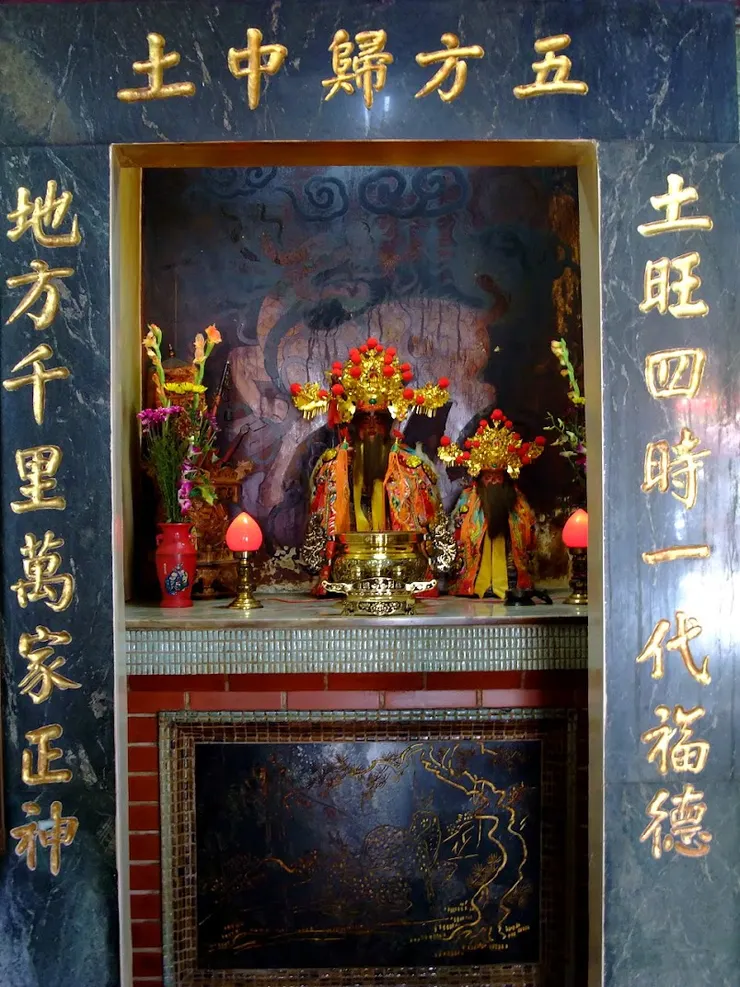 五方歸中土
土旺四時一代福德
地方千里萬家正神